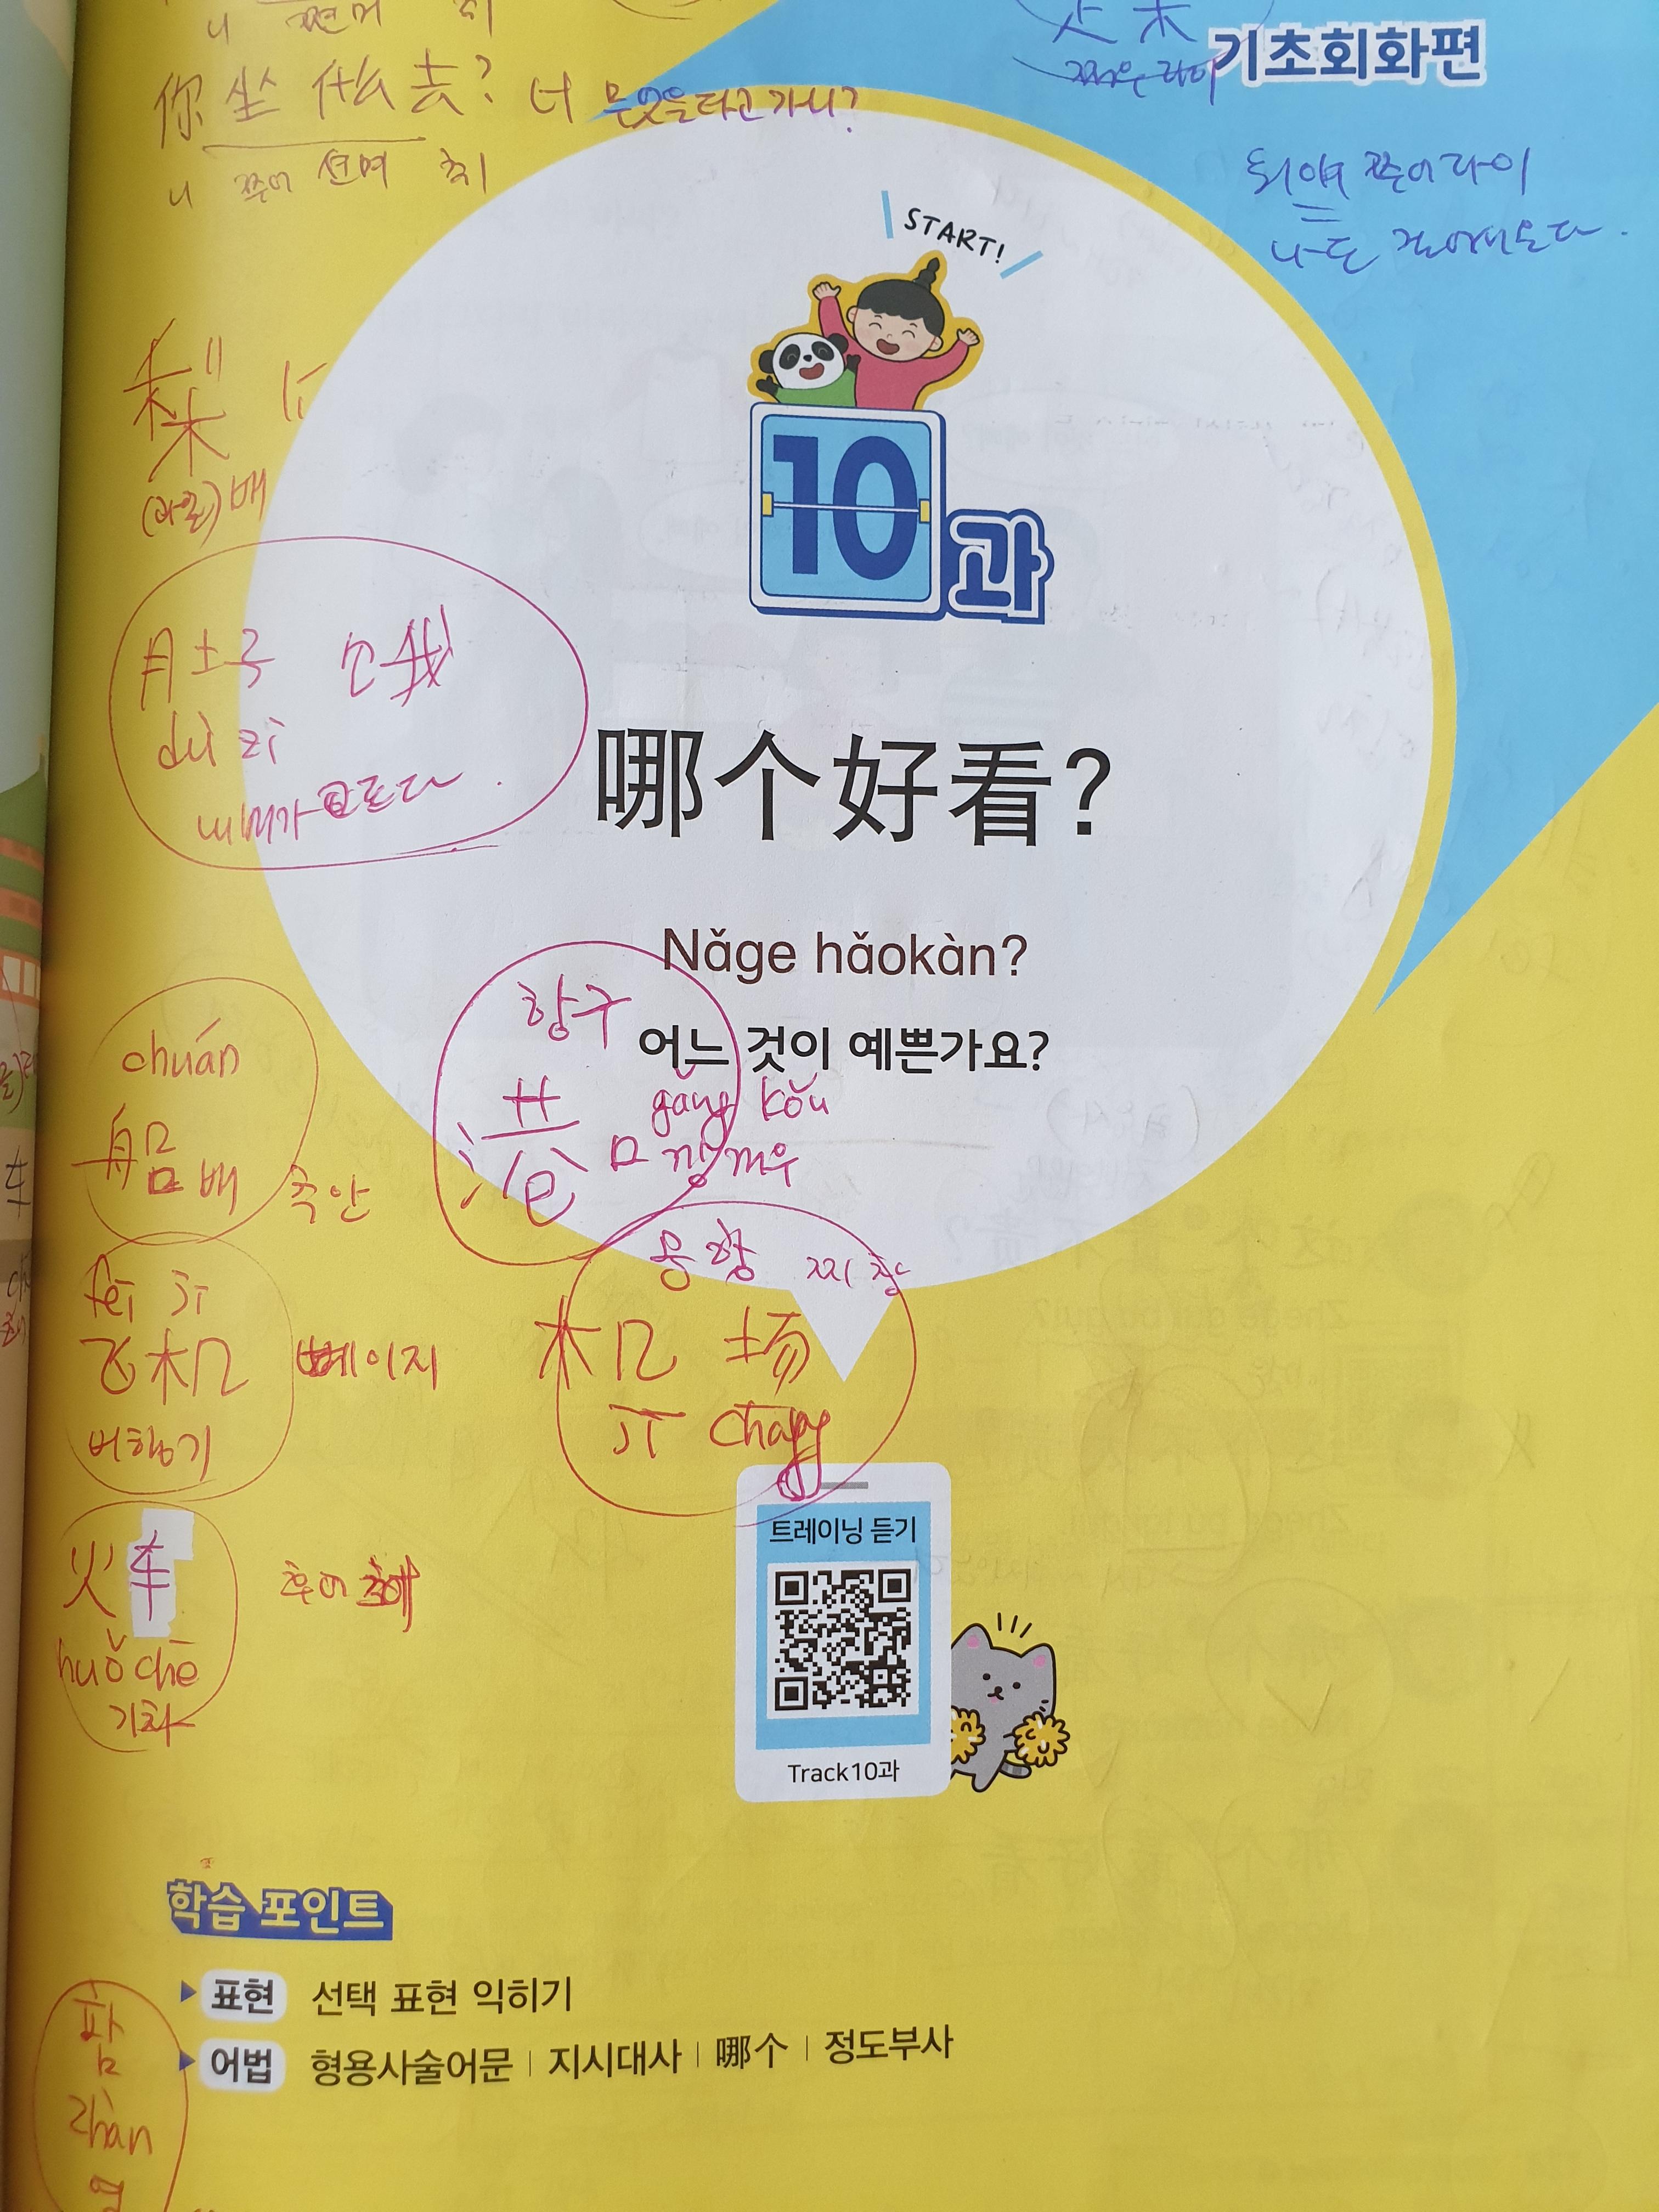 기초회화편
你坐什么去? 너 무엇을타고가니?
니 쭈어 션머 취
쭈어라이
나도 걸어서온다.
START!
梨 lí
(과일)배
10과
肚子 饿
dù zi
내배가 고프다.
哪个好看?
Nǎge hǎokàn?
어느 것이 예쁜가요?
chuán
船 배 추안
항구
港口
gǎng kǒu
깡커우
fēi jī
飞机 뻬이지
비행기
공항 찌창
机场
jī chang
火车
huǒ chē
기차
트레이닝 듣기
Track10과
학습 포인트
표현 선택 표현 익히기
어법 형용사술어문 | 지시대사 | 哪个 | 정도부사
zhàn